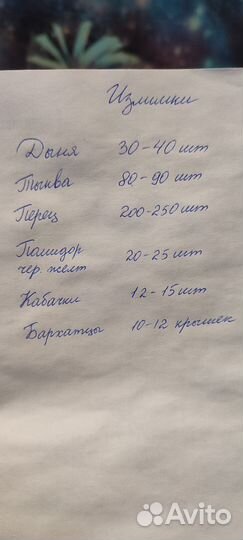 Излишки
Дыня 30-40 шт
Тыква 80-90 шт
Перец 200-250 шт
Помидор
чер. желт 20-25 шт
Кабачки 12-15 шт
Бархатцы 10-12 крышек
Avito